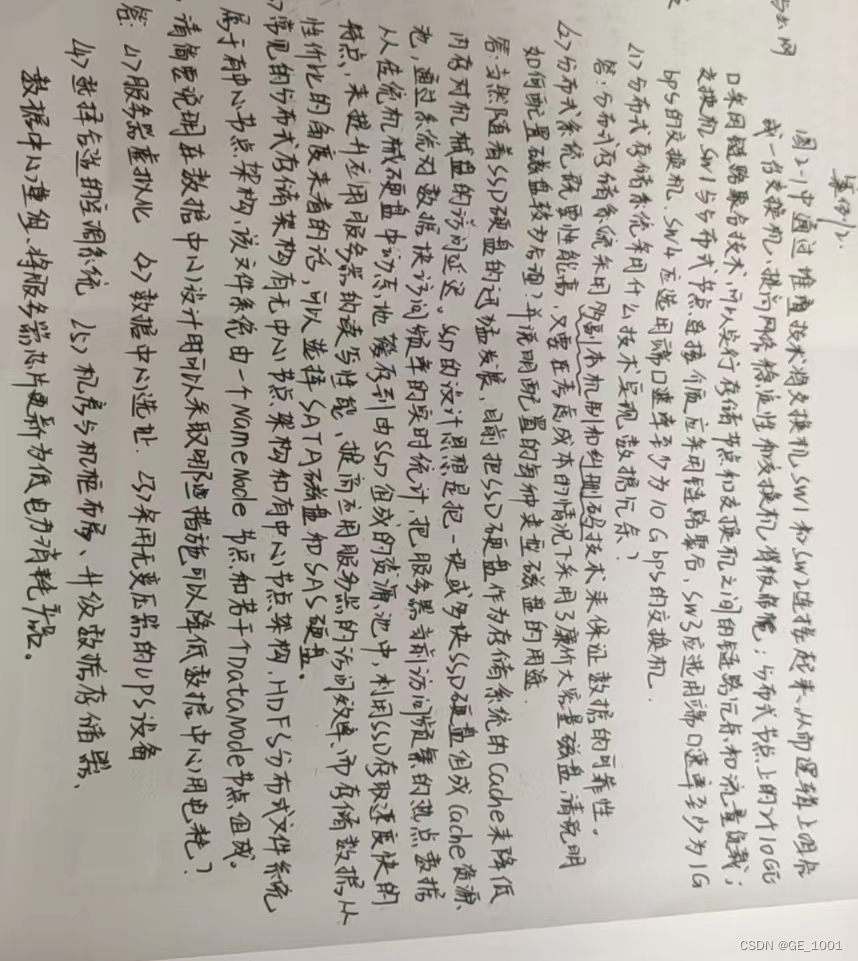 案例2:
图2-1中通过堆叠技术将交换机SW1和SW2连接起来,从而逻辑上组合
成一台交换机,提高网络稳定性和交换机背板带宽;分布式节点上的2个10GE
口采用链路聚合技术,可以实行存储节点和交换机之间的链路冗余和流量负载;
交换机SW1与分布式节点连接介质应采用链路聚合,SW3应选用端口速率至少为1G
bps的交换机,SW4应选用端口速率至少为10Gbps的交换机.
(1)分布式存储系统采用什么技术实现数据冗余?
答:分布式存储系统采用多副本机制和纠删码技术来保证数据的可靠性。
(2)分布式系统既要性能高,又要在考虑成本的情况下采用了廉价大容量磁盘,请说明
如何配置磁盘较为合理?并说明配置的每种类型磁盘的用途.
答:当然随着SSD硬盘的迅猛发展,目前把SSD硬盘作为存储系统的Cache来降低
内存对机械盘的访问延迟。SSD的设计思想是把一块或多块SSD硬盘组成Cache资源
池,通过系统对数据块访问频率的实时统计,把服务器当前访问频繁的热点数据
从传统机械硬盘中动态地缓存到由SSD组成的资源池中,利用SSD存取速度快的
特点,来提升应用服务器的读写性能,提高应用服务器的访问效率,而存储数据,从
性价比的角度来看的话,可以选择SATA磁盘和SAS硬盘。
常见的分布式存储架构有无中心节点架构和有中心节点架构,HDFS分布式文件系统
属于有中心节点架构,该文件系统由一个NameNode节点和若干个DataNode节点组成。
请简要说明在数据中心设计时可以采取哪些措施可以降低数据中心用电耗?
答:(1)服务器虚拟化 (2)数据中心选址.(3)采用无变压器的UPS设备
(4)选择合适的空调系统 (5)机房与机柜布局、升级数据存储器、
数据中心重组、将服务器芯片更新为低电力消耗产品。
CSDN @GE_1001